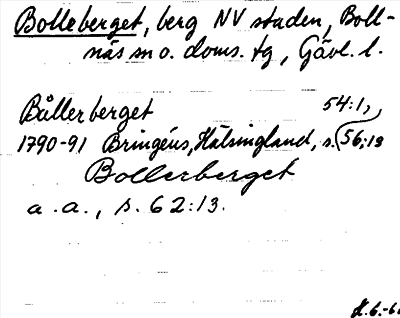 Bolleberget, berg NV staden, Boll-
näs sn o. doms. tg, Gävl. l.
Bållerberget 54:1,
1790-91 Bringéus, Hälsingland, s. 56:13
Bollerberget
a.a., s. 62:13.